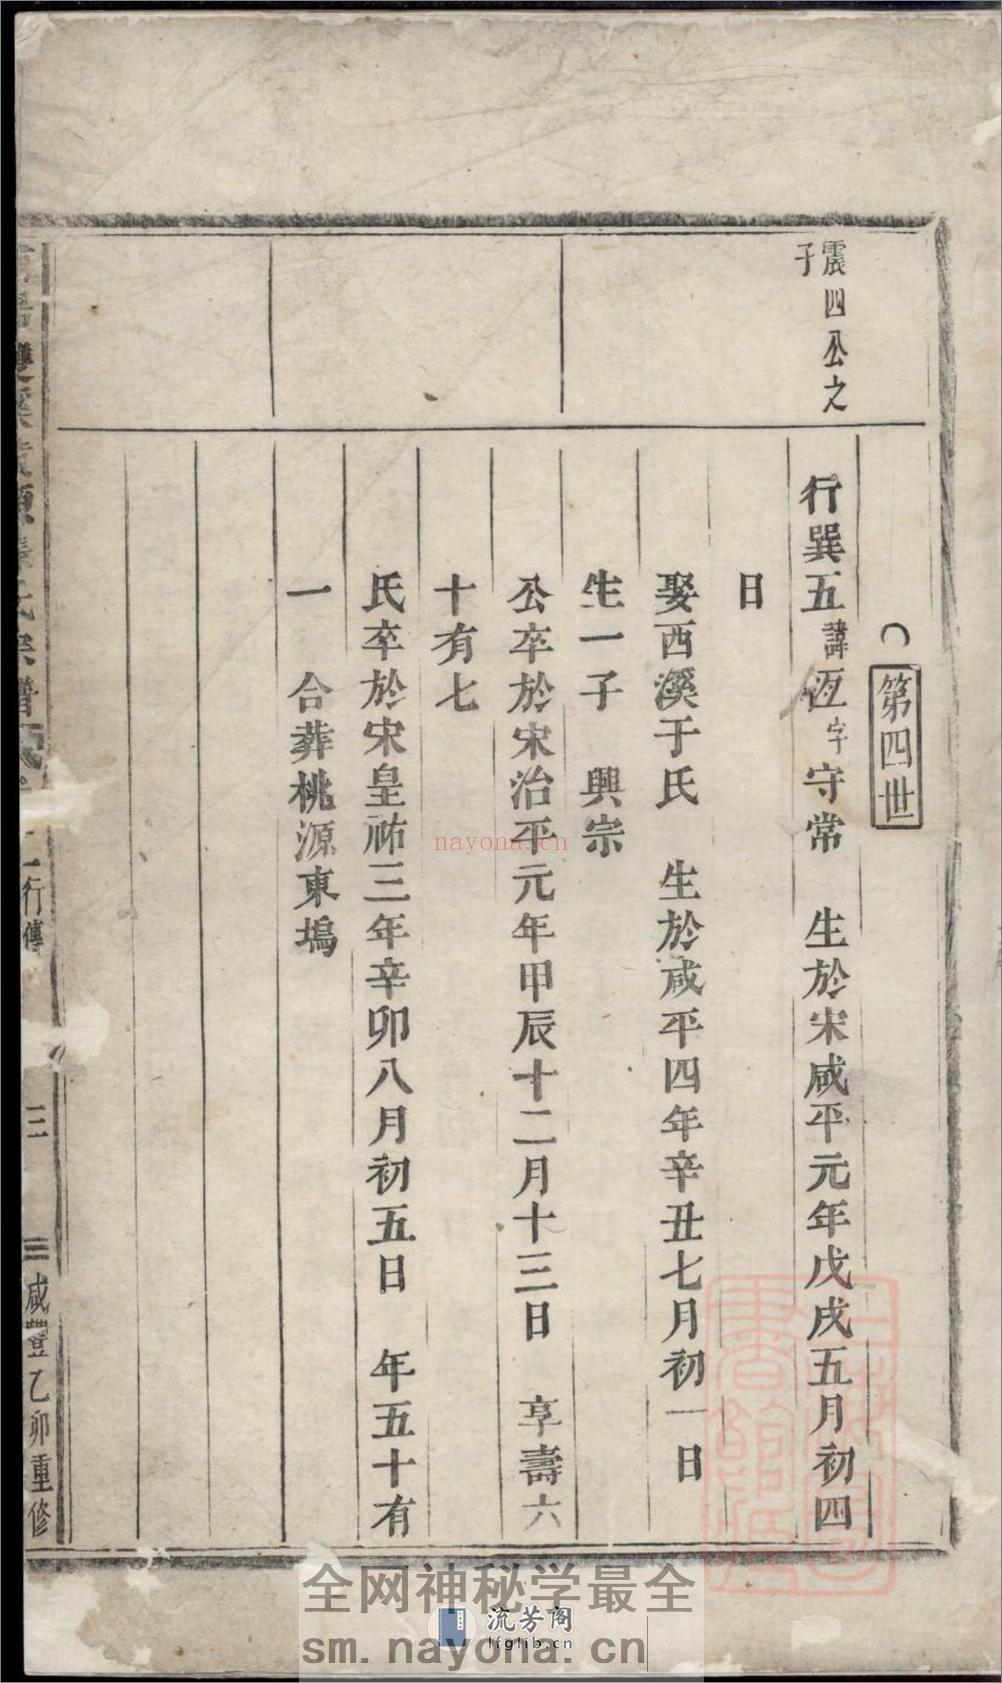 第四世
震四公之
子
行巽五諱亙字守常　生於宋咸平元年戊戌五月初四
日
娶西溪于氏　生於咸平四年辛丑七月初一日
生一子　興宗
公卒於宋治平元年甲辰十二月十三日　享壽六
十有七
氏卒於宋皇祐三年辛卯八月初五日　年五十有
一　合葬桃源東塢
行傳
三
咸豐乙卯重修
nayona.cn
全网神秘学最全
流芳阁
lfglib.cn
sm.nayona.cn